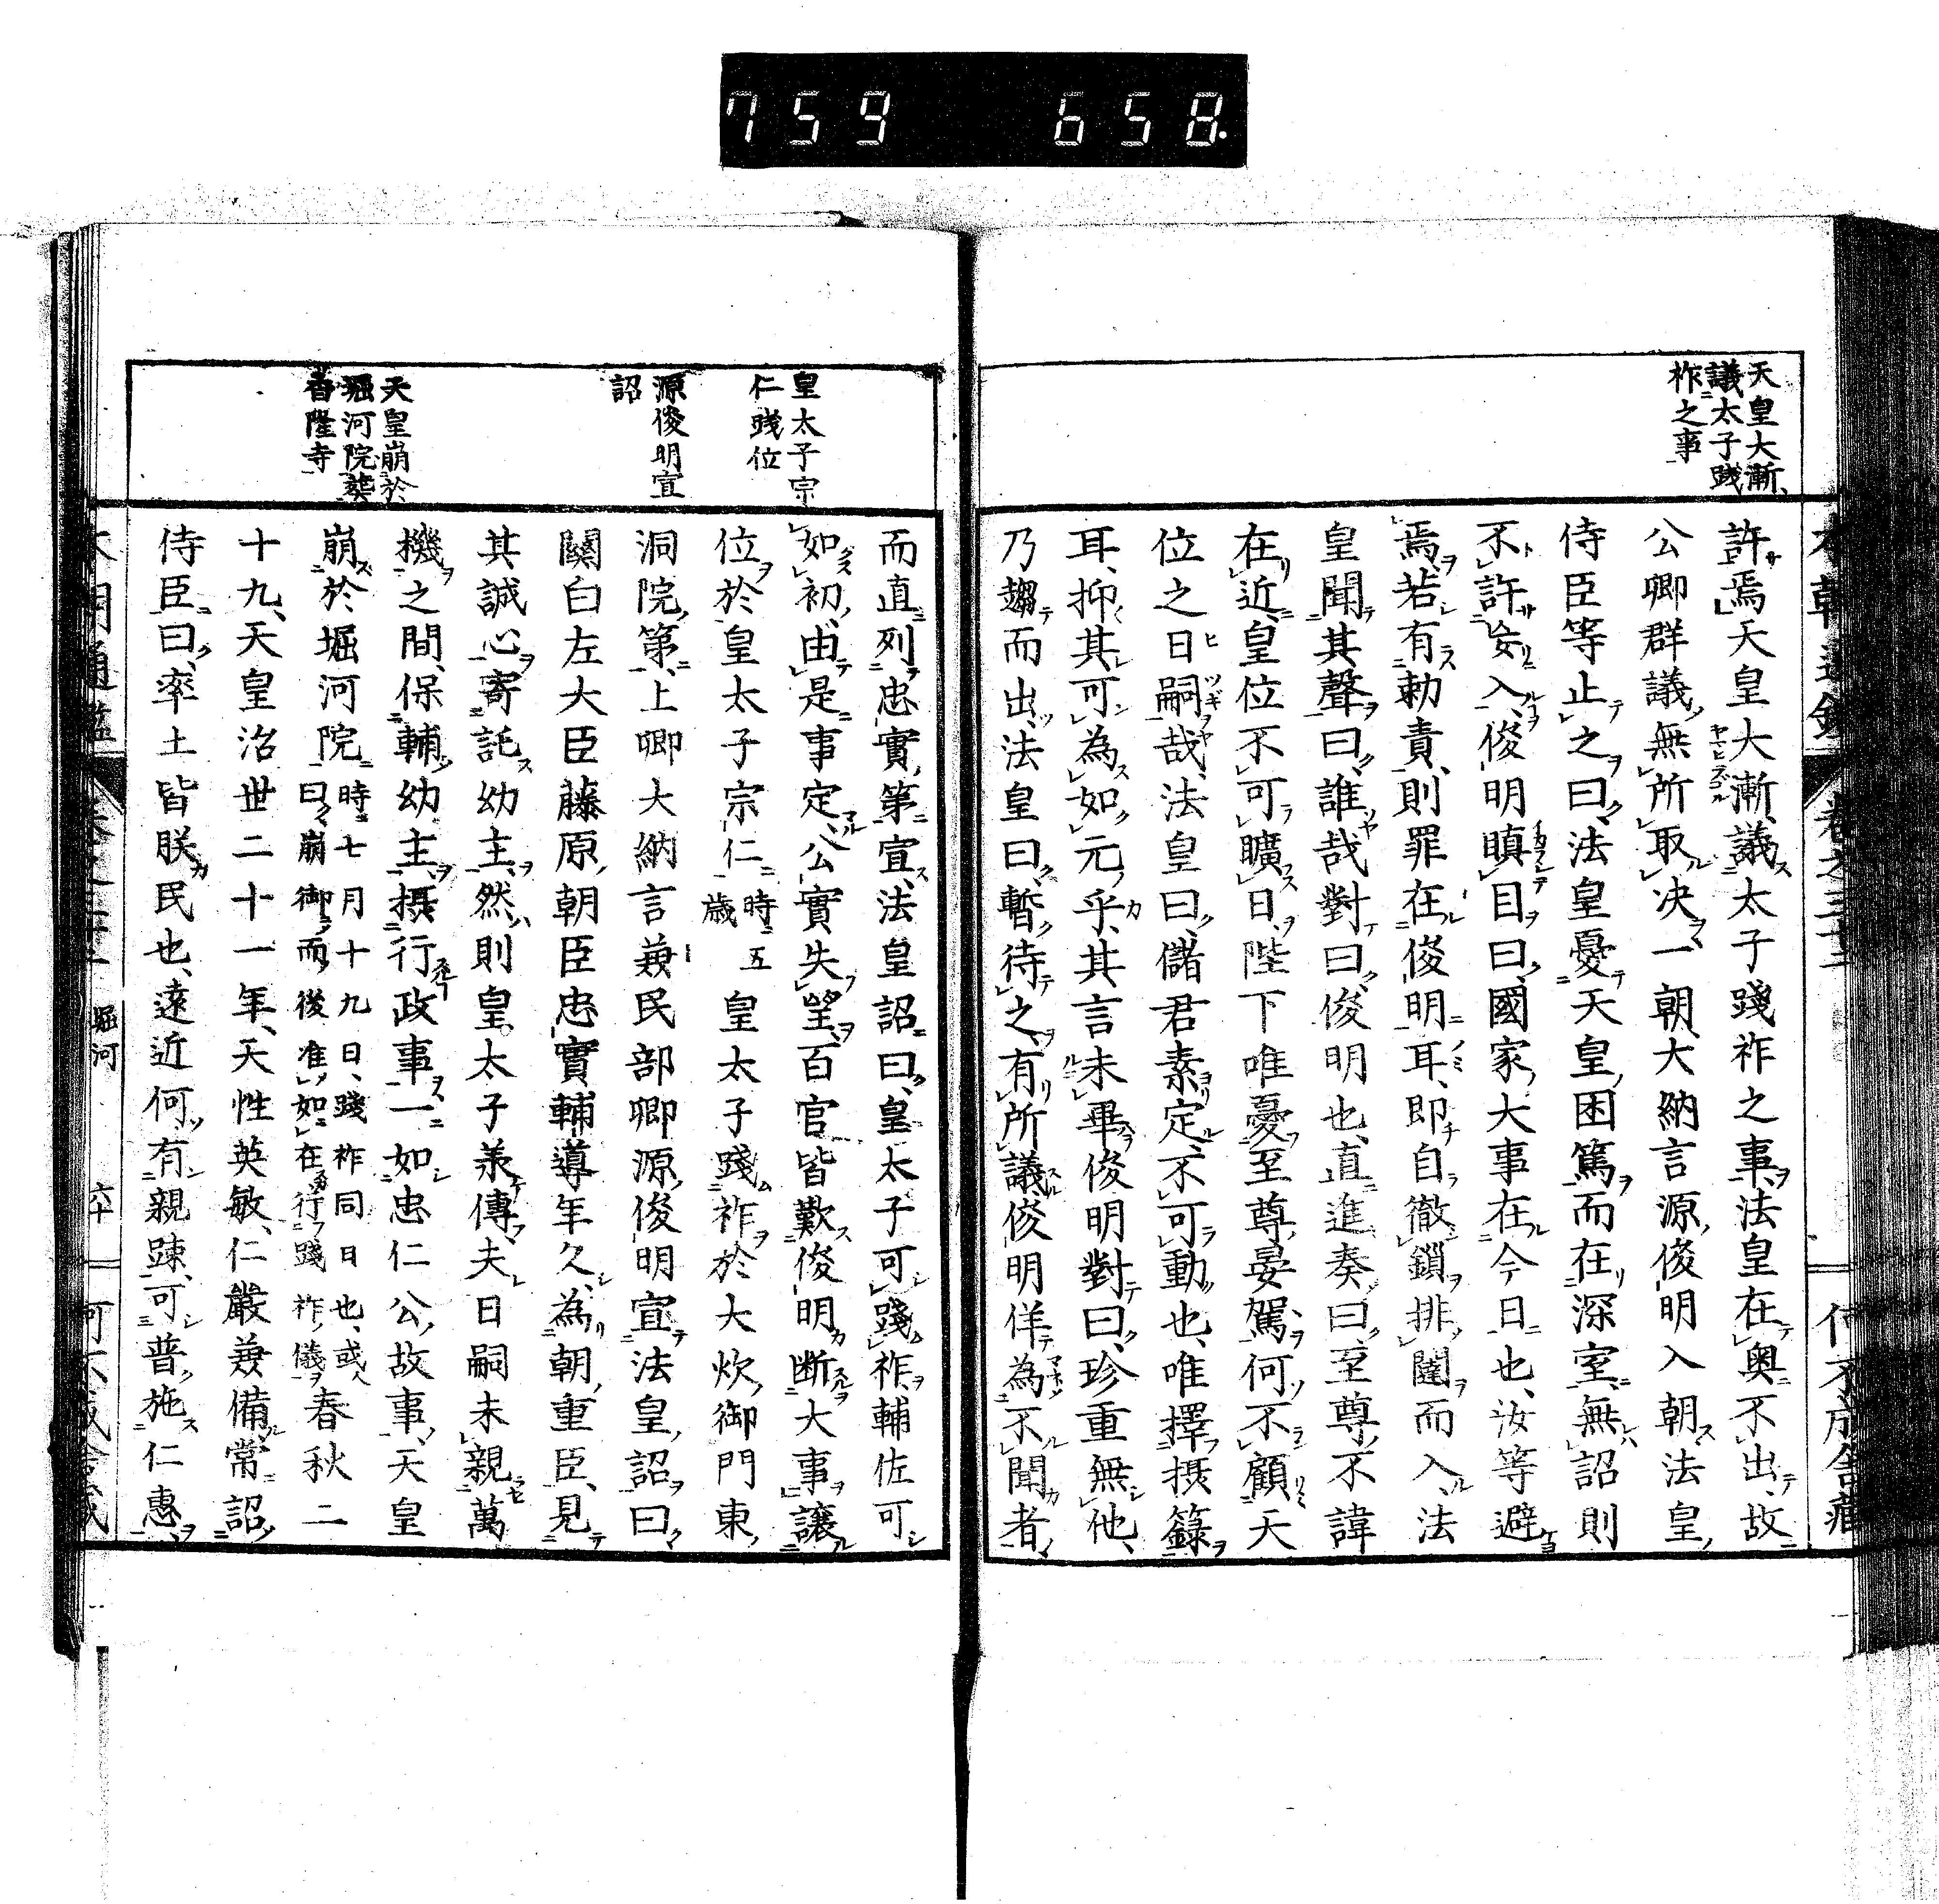 759 658.
天皇大漸、
議太子踐
祚之事
許焉天皇大漸議太子踐祚之事法皇在奥不出、故
公卿群議無所取决一朝、大納言源俊明入朝法皇
侍臣等止之曰法皇憂天皇困篤而在深室無詔則
不許妄入俊明瞋目曰國家大事在今日也、汝等避
焉若有勅責則罪在俊明耳、即自徹鎖排闥而入法
皇聞其聲曰誰哉對曰俊明也、直進奏曰至尊不諱
在近皇位不可曠日陛下唯憂至尊晏駕何不顧天
位之日嗣哉、法皇曰儲君素定不可動也、唯擇摂籙
耳、抑其可為如元乎、其言未畢俊明對曰珍重無他、
乃趨而出法皇曰暫待之有所議俊明佯為不聞者
皇太子宗
仁踐位
源俊明宣
詔
天皇崩於
堀河院葬
香隆寺
而直列忠實第宣法皇詔曰皇太子可踐祚輔佐可
如初由是事定公實失望百官皆歎俊明断大事讓
位於皇太子宗仁時五歳皇太子踐祚於大炊御門東
洞院第上卿大納言兼民部卿源俊明宣法皇詔曰
關白左大臣藤原朝臣忠實輔導年久、為朝重臣見
其誠心寄託幼主然則皇太子兼傳夫日嗣未親萬
機之間、保輔幼主摂行政事一如忠仁公故事天皇
崩於堀河院時七月十九日、踐祚同日也、或人曰崩御而後准如在行踐祚儀春秋二
十九、天皇治世二十一年、天性英敏、仁嚴兼備常詔
侍臣曰率土皆朕民也、遠近何有親踈可普施仁惠
堀河